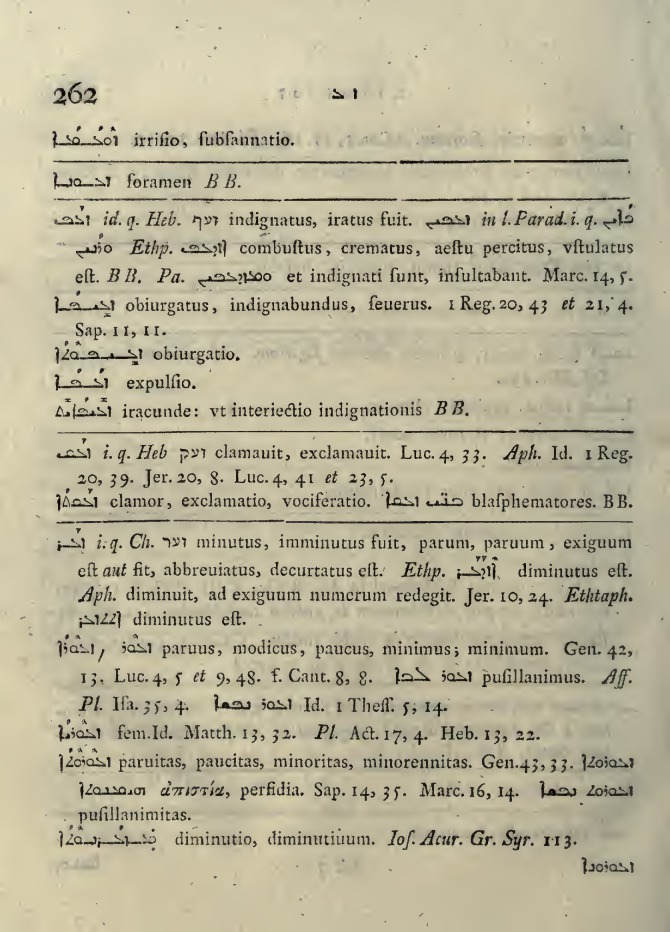 262 ܙܥ
ܙܘܥܙܥܐ irriſio, ſubſannatio.
foramen B B.
ܙܥܦ id. q. Heb. זעף indignatus, iratus fuit. ܙܥܦܝܢ in l. Parad. i. q.
Ethp. ܐܙܕܥܦ combuſtus, crematus, aeſtu percitus, vſtulatus
eſt. B B. Pa. ܡܙܕܥܦܝܢ ܗܘܘ et indignati ſunt, inſultabant. Marc. 14, 5.
ܙܥܝܦܐ obiurgatus, indignabundus, ſeuerus. 1 Reg. 20, 43 et 21, 4.
Sap. 11, 11.
ܙܥܝܦܘܬܐ obiurgatio.
ܙܥܦܐ expulſio.
ܙܥܝܦܐܝܬ iracunde: vt interiectio indignationis B B.
ܙܥܩ i. q. Heb זעק clamauit, exclamauit. Luc. 4, 33. Aph. Id. 1 Reg.
20, 39. Jer. 20, 8. Luc. 4, 41 et 23, 5.
ܙܥܩܬܐ clamor, exclamatio, vociferatio. blaſphematores. B B.
ܙܥܪ i. q. Ch. זער minutus, imminutus fuit, parum, paruum, exiguum
eſt aut fit, abbreuiatus, decurtatus eſt. Ethp. ܐܙܕܥܪ diminutus eſt.
Aph. diminuit, ad exiguum numerum redegit. Jer. 10, 24. Ethtaph.
ܐܬܬܙܥܪ diminutus eſt.
ܙܥܘܪܐ, ܙܥܘܪ paruus, modicus, paucus, minimus; minimum. Gen. 42,
13. Luc. 4, 5 et 9, 48. f. Cant. 8, 8. ܙܥܘܪ ܠܒܐ puſillanimus. Aff.
Pl. Iſa. 35, 4. ܙܥܘܪ ܢܦܫܐ Id. 1 Theſſ. 5, 14.
ܙܥܘܪܝܐ fem. Id. Matth. 13, 32. Pl. Act. 17, 4. Heb. 13, 22.
ܙܥܘܪܘܬܐ paruitas, paucitas, minoritas, minorennitas. Gen. 43, 33. ܙܥܘܪܘܬ
ܗܝܡܢܘܬܐ ἀπιστία, perfidia. Sap. 14, 35. Marc. 16, 14. ܙܥܘܪܘܬ ܢܦܫܐ
puſillanimitas.
ܡܙܥܪܢܘܬܐ diminutio, diminutiuum. Ioſ. Acur. Gr. Syr. 113.